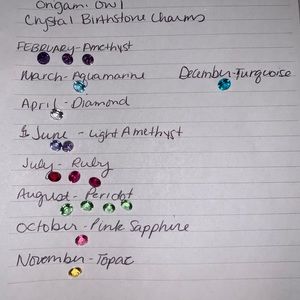 Origami Owl
Crystal Birthstone Charms
February - Amethyst
March - Aquamarine
December - Turquoise
April - Diamond
June - Light Amethyst
July - Ruby
August - Peridot
October - Pink Sapphire
November - Topaz